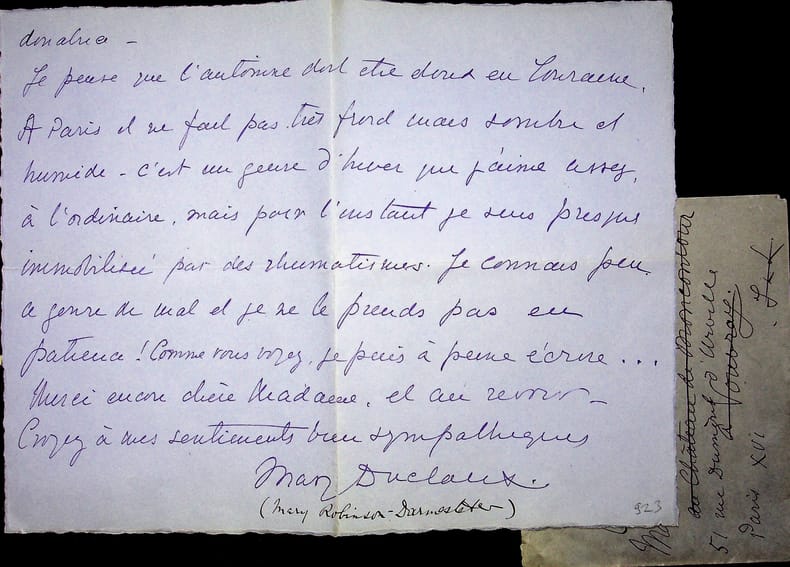 donatrice –
Je pense que l'automne doit être doux en Touraine.
A Paris il ne fait pas très froid mais sombre et
humide – c'est un genre d'hiver que j'aime assez,
à l'ordinaire, mais pour l'instant je suis presque
immobilisée par des rhumatismes. Je connais peu
ce genre de mal et je ne le prends pas en
patience ! Comme vous voyez, je puis à peine écrire ...
Merci encore chère Madame, et au revoir –
Croyez à mes sentiments bien sympathiques
Mary Duclaux.
(Mary Robinson-Darmesteter)
923
au Château de Moncontour
51 rue Dumont d'Urville
à Vouvray.
Paris XVI